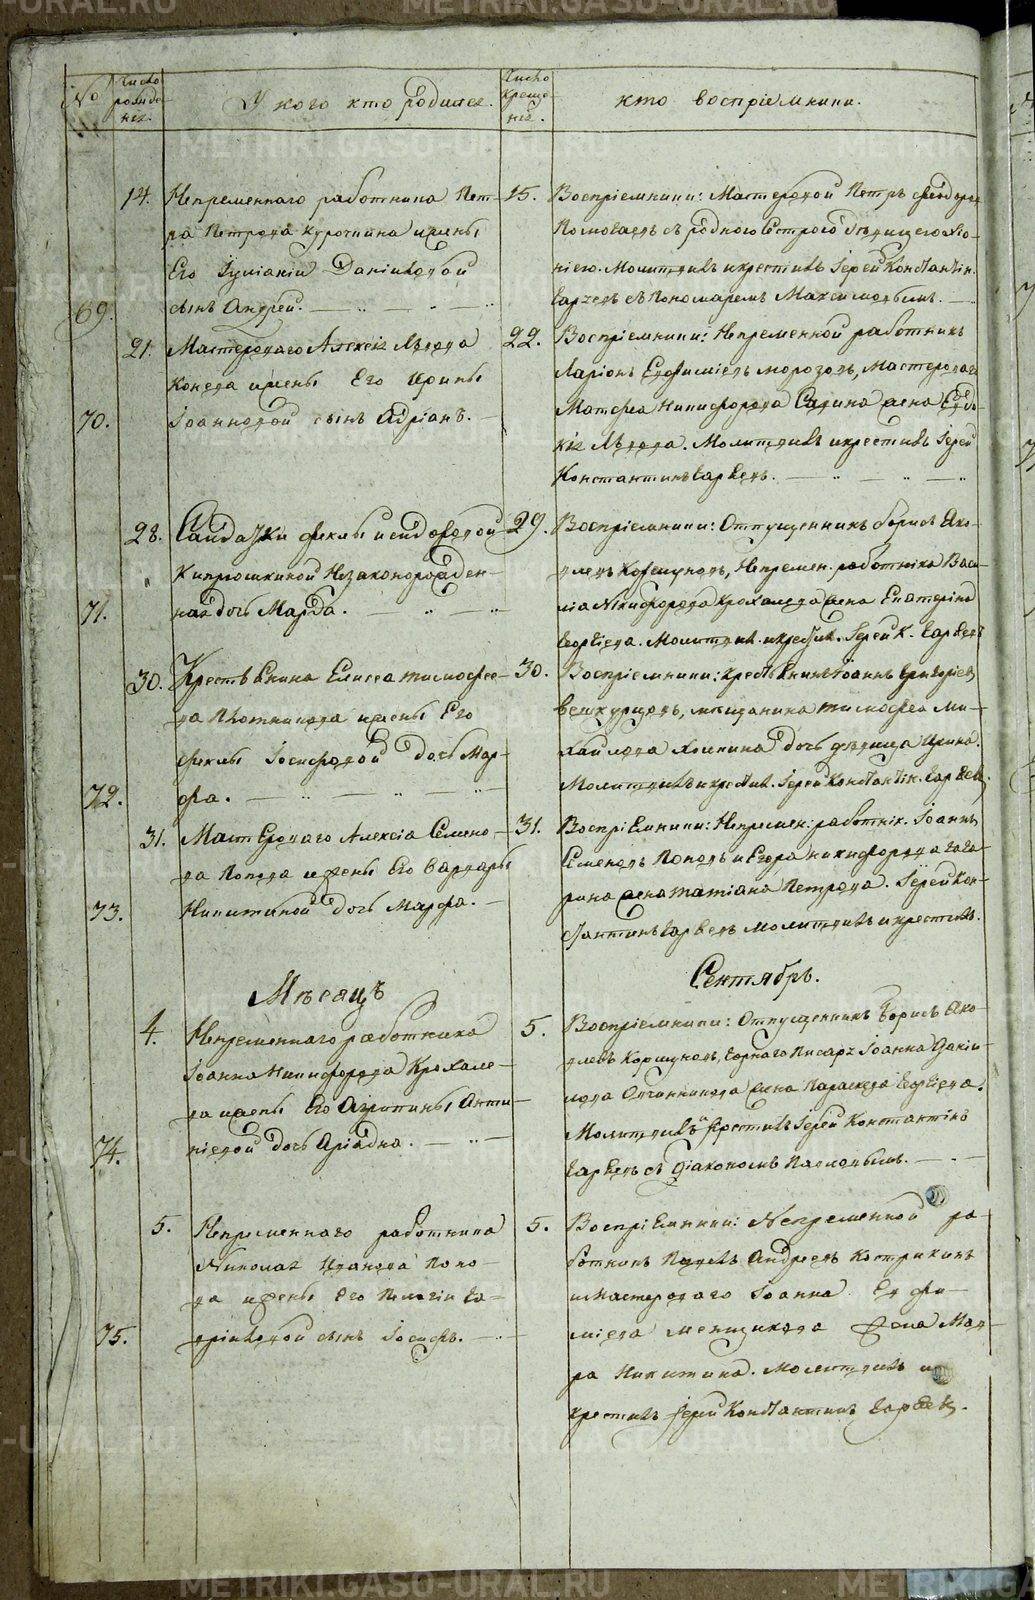 №
Число рожде-нiя.
У кого кто родился.
Число креще-нiя.
кто воспрiемники.
69.
14.
Непременнаго работника Пет-
ра Петрова Курочкина и жены
Его Iулiанiи Данiиловой
сынъ Андрей.
15.
Воспрiемники: Мастеровой Петръ Феодоров
Молитвилъ и крестилъ Iерей Константин
Карзевъ съ пономаремъ Максимовымъ.
70.
21.
Мастероваго Алексiя Львова
Конева и жены Его Ирины
Iоанновой сынъ Адрiанъ.
22.
Воспрiемники: Непременной работникъ
Ларiонъ Евфимiевъ Морозовъ, Мастероваго
Матфея Никифорова Савина жена Евдо-
кiя Львова. Молитвилъ и крестилъ Iерей
Константинъ
71.
28.
Солдатки Феклы Исидоровой
Кипрюшкиной Незаконорожден-
ная дочь Марфа.
29.
Воспрiемники: Отпущенникъ Борисъ Яко-
влевъ Коршуновъ, Непремен. работника Васи-
лiя Никифорова Крохалева жена Екатерина
Молитвил. и крестил. Iерей К.
72.
30.
Крестьянина Елисея Тимофее-
ва Плотникова и жены Его
Феклы Iосифовой дочь Мар-
фа.
30.
Воспрiемники: крестьянинъ Iоаннъ Григорiевъ
Вешкурцовъ, мещанина Тимофея Ми-
хайлова Хомина дочь девица Ирина.
Молитвилъ и крестил. Iерей Константин.
73.
31.
Мастероваго Алексiя Семено-
ва Попова и жены Его Варвары
Никитиной дочь Марфа.
31.
Воспрiемники: Непремен: работник. Iоаннъ
Семеновъ Поповъ и Егора Никифорова Гага-
рина жена Татiана Петрова. Iерей Кон-
стантинъ молитвилъ и крестилъ.
Мѣсяцъ
Сентябрь.
74.
4.
Непременнаго работника
Iоанна Никифорова Крохале-
ва и жены Его Агрипины Анти-
пiевой дочь Арiадна.
5.
Воспрiемники: Отпущенникъ Борисъ Яко-
влевъ Коршуновъ, Горнаго Писаря Iоанна Данiи-
лова Овчинникова жена Параскева
Молитвилъ и крестилъ Iерей Константинъ
съ Дiакономъ Павловымъ.
75.
5.
Непременнаго работника
Николая Иванова Попо-
ва и жены Его Пелагiи Га-
врiиловой сынъ Iосифъ.
5.
Воспрiемники: Непременной ра-
ботникъ Павелъ Андреевъ Кострикинъ
и Мастероваго Iоанна Евфи-
мiева Менщикова жена Мав-
ра Никитина. Молитвилъ и
крестилъ Iерей Константинъ
METRIKI.GASO-URAL.RU